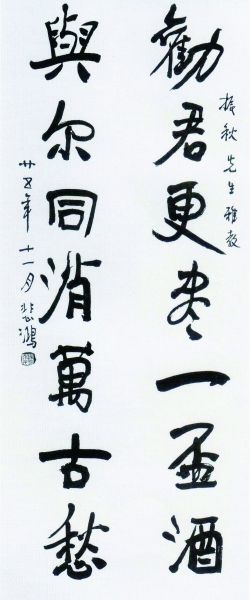 振秋先生雅教
勸君更尽一盃酒
與尔同消萬古愁
廿五年十一月悲鴻